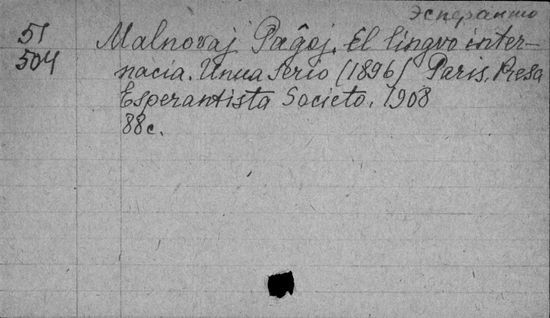 Эсперанто
51
504
Malnovaj Paĝoj. El lingvo inter-
nacia. Unua serio (1896) Paris. Presa
Esperantista Societo. 1908
88c.